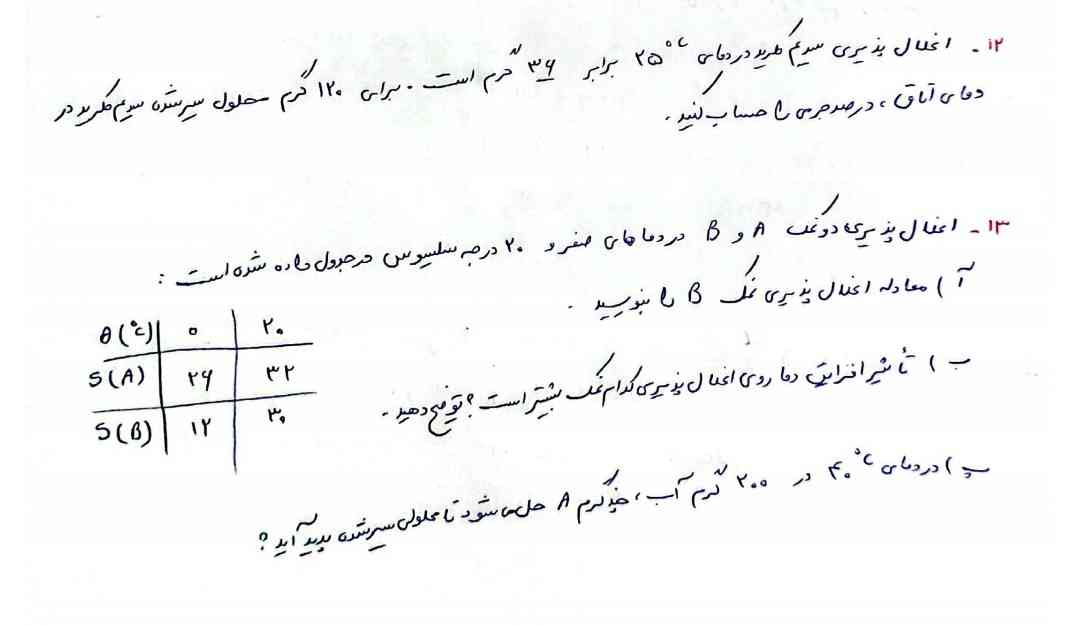 ۱۲- انحلال پذیری سدیم کلرید در دمای ۲۵°C برابر ۳۶ گرم است. برای ۱۲۰ گرم محلول سیرشده سدیم کلرید در
دمای اتاق، درصد جرمی را حساب کنید.
۱۳- انحلال پذیری دو نمک A و B در دماهای صفر و ۲۰ درجه سلسیوس در جدول داده شده است:
آ) معادله انحلال پذیری نمک B را بنویسید.
θ(°C) ۰ ۲۰
S(A) ۲۶ ۳۲
S(B) ۱۲ ۳۰
ب) تأثیر افزایش دما روی انحلال پذیری کدام نمک بیشتر است؟ توضیح دهید.
پ) در دمای ۴۰°C در ۲۰۰ گرم آب، چند گرم A حل می شود تا محلولی سیرشده پدید آید؟